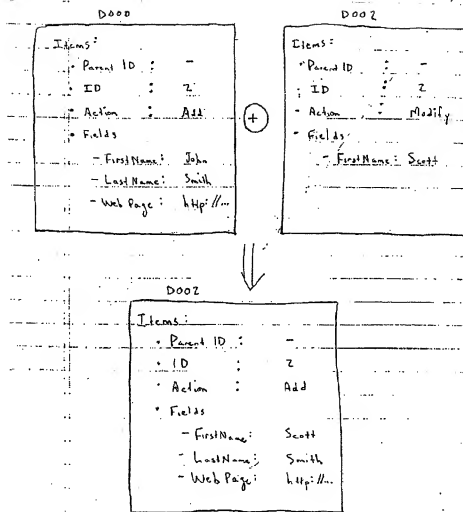 D000
Items:
• Parent ID : -
• ID : 2
• Action : Add
• Fields
- FirstName: John
- LastName: Smith
- Web Page: http://...
+
D002
Items:
• Parent ID : -
• ID : 2
• Action : Modify
• Fields
- FirstName: Scott
D002
Items:
• Parent ID : -
• ID : 2
• Action : Add
• Fields
- FirstName: Scott
- LastName: Smith
- Web Page: http://...